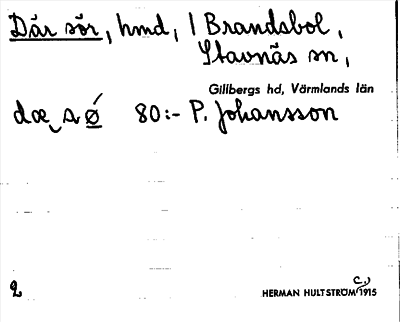 Där sör, hmd, 1 Brandsbol,
Stavnäs sn,
Gillbergs hd, Värmlands län
dæ sǿ 80:- P. Johansson
2 HERMAN HULTSTRÖM c.) 1915